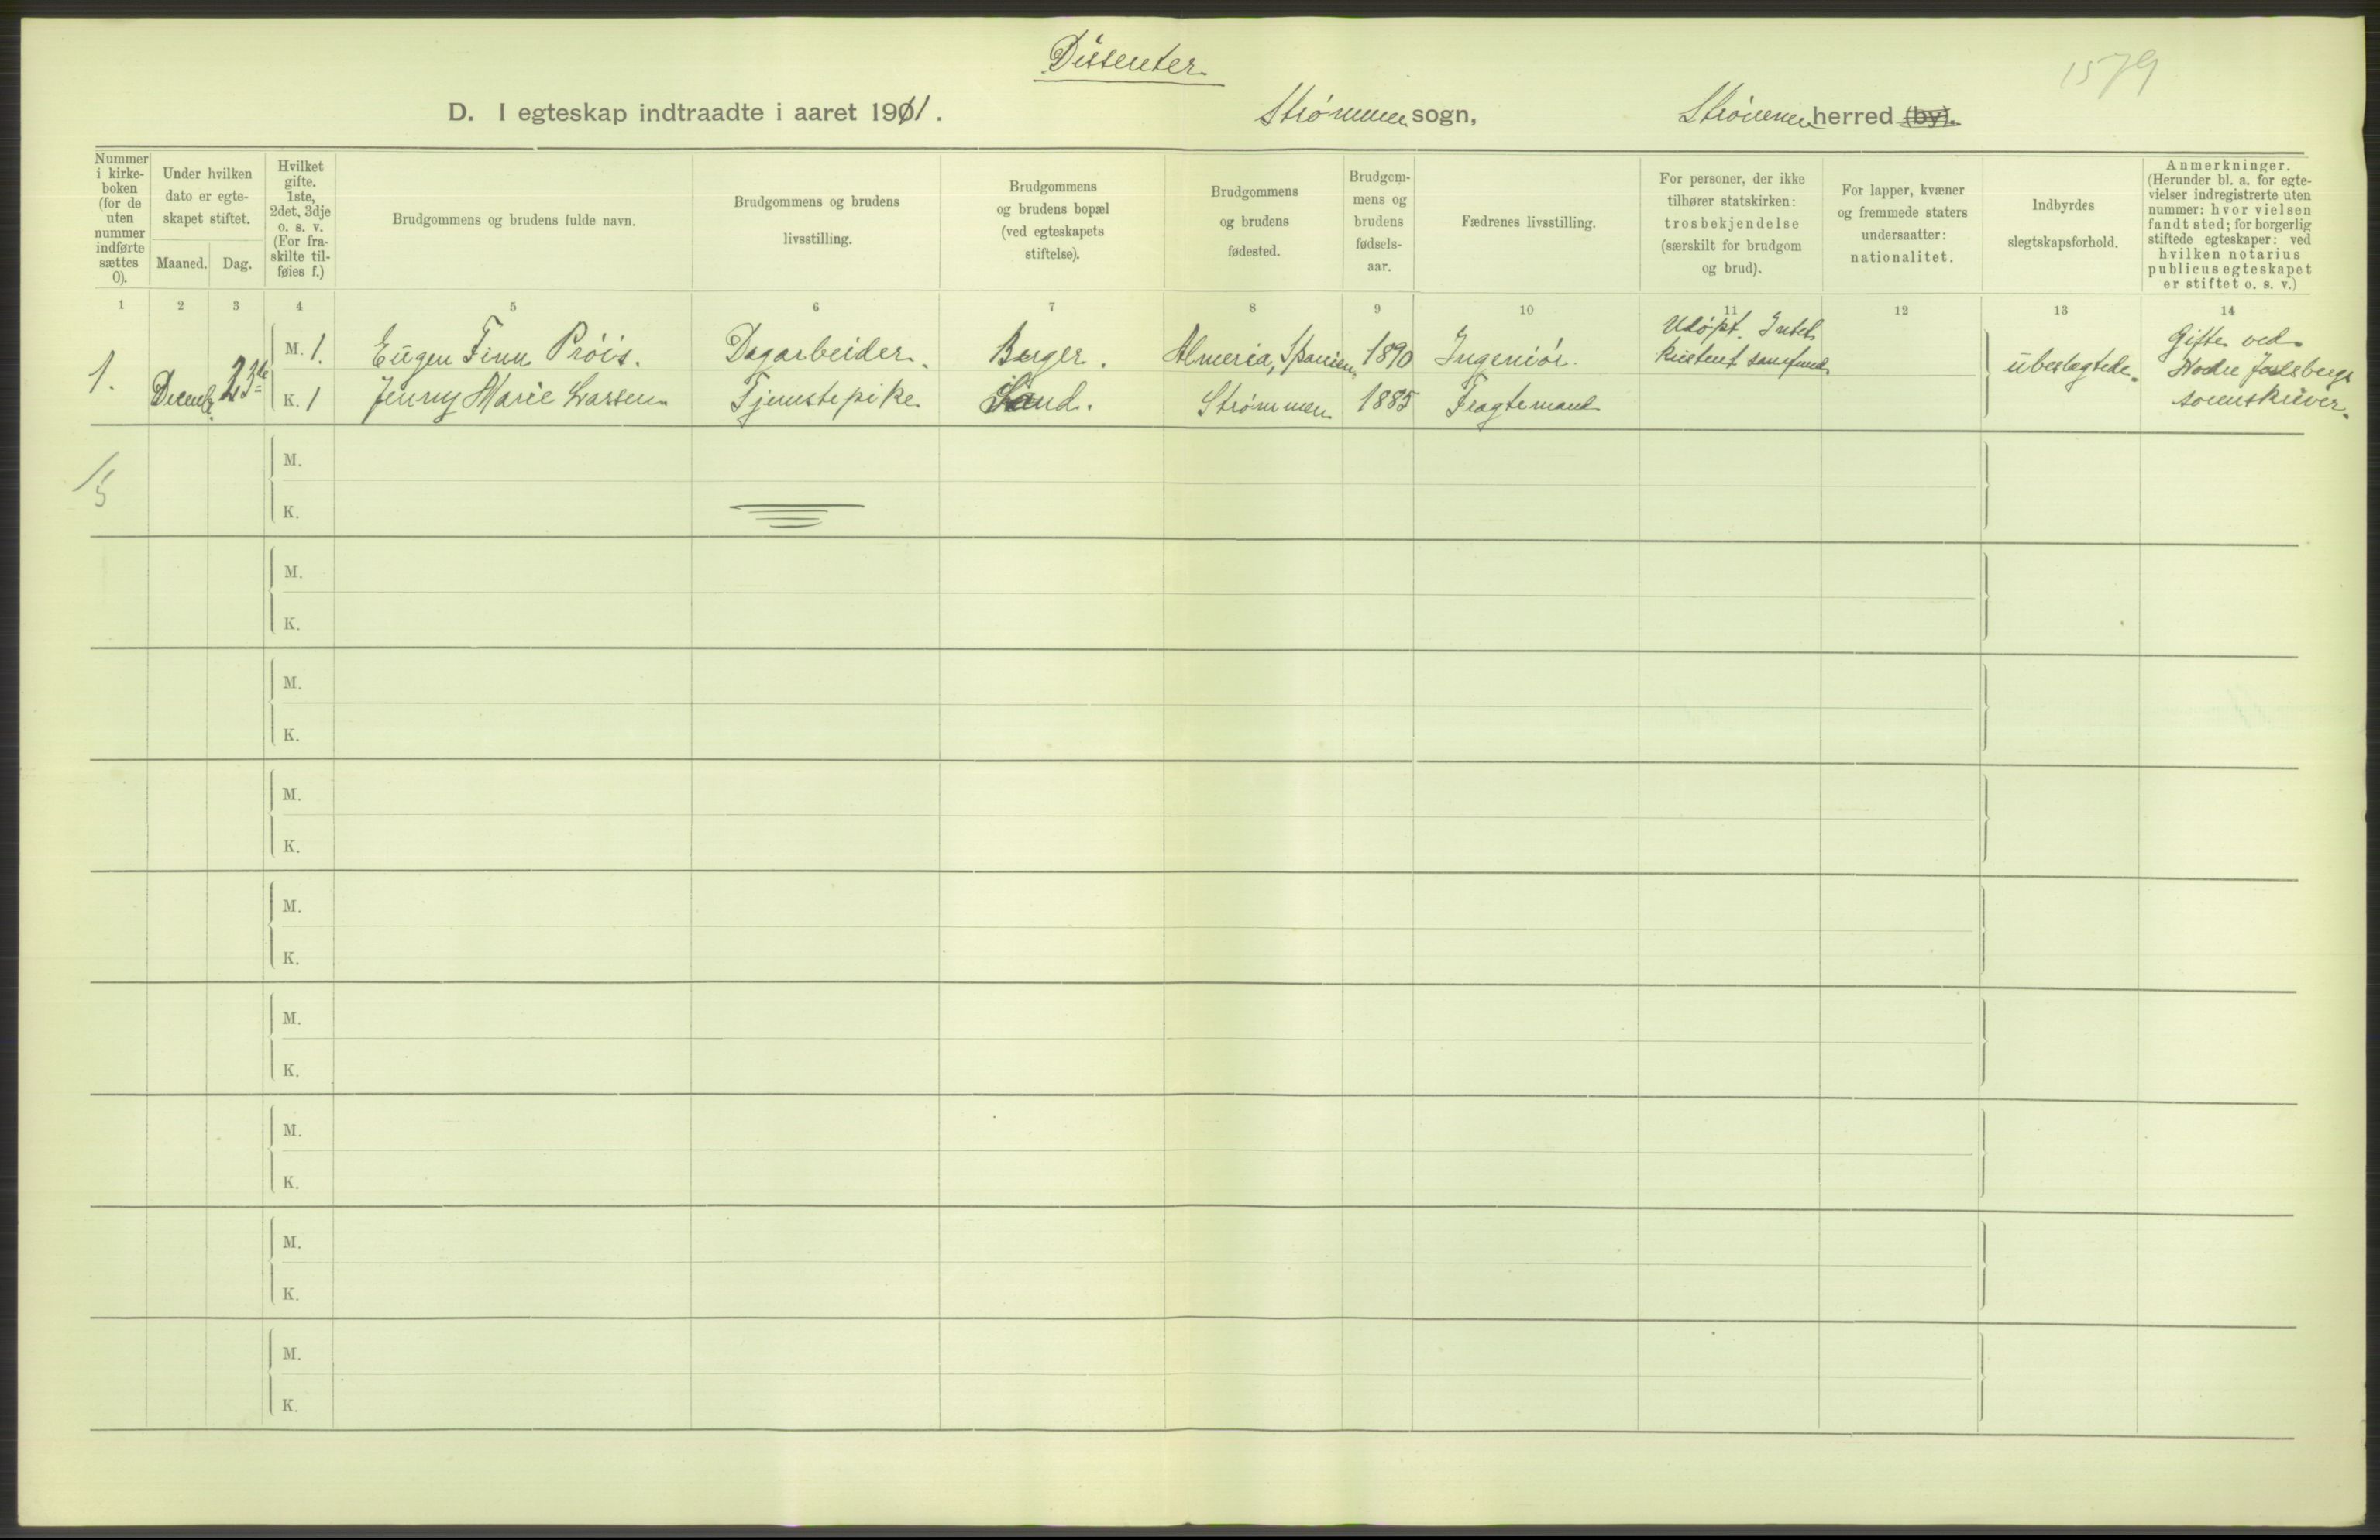 Dissenter
1579
D. I egteskap indtraadte i aaret 1911. Strømmen sogn, Strømmen herred (by).
Nummer i kirkeboken (for de uten nummer indførte sættes 0).
Under hvilken dato er egteskapet stiftet.
Maaned. Dag.
Hvilket gifte. 1ste, 2det, 3dje o. s. v. (For fraskilte tilføies f.)
Brudgommens og brudens fulde navn.
Brudgommens og brudens livsstilling.
Brudgommens og brudens bopæl (ved egteskapets stiftelse).
Brudgommens og brudens fødested.
Brudgommens og brudens fødselsaar.
Fædrenes livsstilling.
For personer, der ikke tilhører statskirken: trosbekjendelse (særskilt for brudgom og brud).
For lapper, kvæner og fremmede staters undersaatter: nationalitet.
Indbyrdes slegtskapsforhold.
Anmerkninger. (Herunder bl. a. for egtevielser indregistrerte uten nummer: hvor vielsen fandt sted; for borgerlig stiftede egteskaper: ved hvilken notarius publicus egteskapet er stiftet o. s. v.)
1 2 3 4 5 6 7 8 9 10 11 12 13 14
1. Decemb. 23de
M. 1. Eugen Finn Prøis. Dagarbeider. Berger. Almeria, Spanien. 1890 Ingeniør. Udøpt. Intet kristent samfund.
K. 1 Jenny Marie Larsen Tjenstepike. Sand. Strømmen 1885 Fragtemand
ubeslegtede.
Gifte ved
Nodre Jarlsbergs
sorenskriver.
1/5
M.
K.
M.
K.
M.
K.
M.
K.
M.
K.
M.
K.
M.
K.
M.
K.
M.
K.